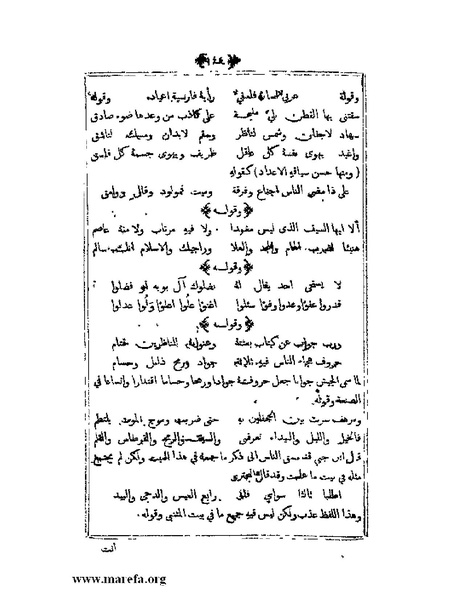 ﴿١٤٤﴾
وقوله عربي لسانه فلسفي رأيه فارسية اعياده وقوله
سقتني بها القطربلي مليحة على كاذب من وعدها ضوء صادق
سهاد لاجفان وشمس لناظر وسقم لابدان ومسك لناشق
واغيد يهوى نفسه كل عاقل ظريف ويهوى جسمه كل فاسق
(ومنها حسن سياقه الاعداد) كقوله
على ذا مضى الناس اجتماع وفرقة وميت ومولود وقال ووامق
﴿وقوله﴾
ألا ايها السيف الذي ليس مغمدا ولا فيه مرتاب ولا منه عاصم
هنيئا لضرب الهام والمجد والعلا وراجيك والاسلام انك سالم
﴿وقوله﴾
لا يستحى احد يقال له نضلوك آل بويه او فضلوا
قدروا عفوا وعدوا وفوا سئلوا اغنوا علوا اعلوا ولوا عدلوا
﴿وقوله﴾
ورب جواب عن كتاب بعثته وعنوانه للناظرين قتام
حروف هجاء الناس فيه ثلاثة جواد ورمح ذابل وحسام
لما سمى الجيش جوابا جعل حروفه جوادا ورمحا وحساما اقتدارا واتساعا في
الصنعة وقوله
ومرهف سرت بين الجحفلين به حتى ضربت وموج الموت يلتطم
فالخيل والليل والبيداء تعرفني والسيف والرمح والقرطاس والقلم
قال ابن جني قد سبق الناس الى ذكر ما جمعه في هذا البيت ولكن لم يجتمع
مثله في بيت ما علمت وقد قال البحتري
اطلبا ثالثا سواي فاني رابع العيس والدجى والبيد
وهذا اللفظ عذب ولكن ليس فيه جميع ما في بيت المتنبي وقوله
أنت
www.marefa.org